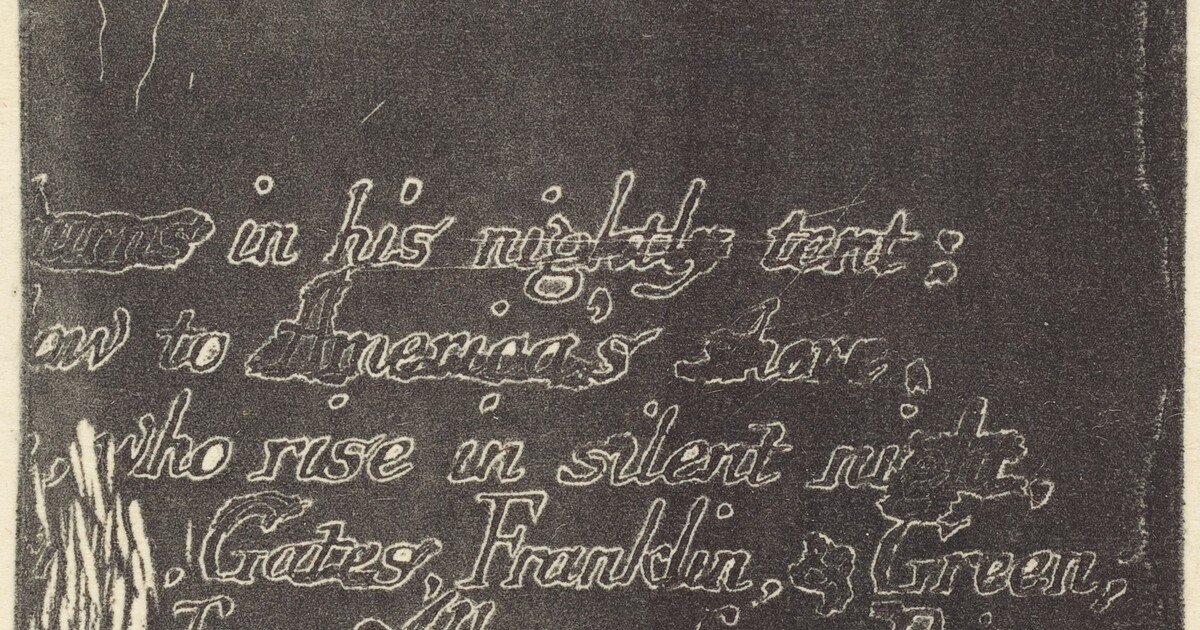 burns in his nightly tent:
to America's shore,
who rise in silent night,
Gates, Franklin, & Green,